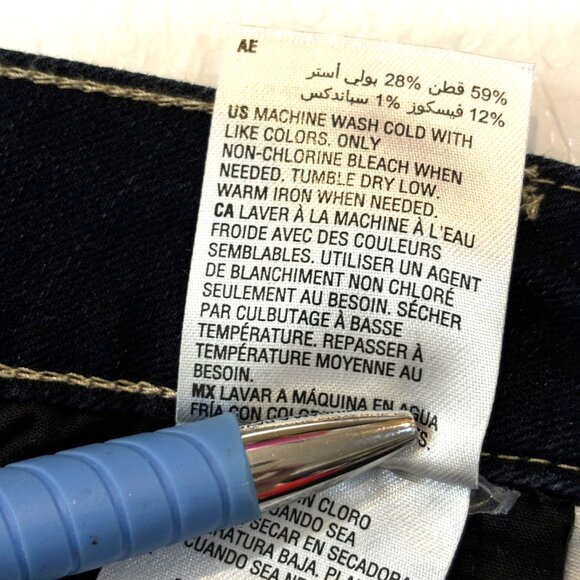 AE
59% قطن 28% بولي أستر
12% فيسكوز 1% سباندكس
US MACHINE WASH COLD WITH
LIKE COLORS. ONLY
NON-CHLORINE BLEACH WHEN
NEEDED. TUMBLE DRY LOW.
WARM IRON WHEN NEEDED.
CA LAVER À LA MACHINE À L'EAU
FROIDE AVEC DES COULEURS
SEMBLABLES. UTILISER UN AGENT
DE BLANCHIMENT NON CHLORÉ
SEULEMENT AU BESOIN. SÉCHER
PAR CULBUTAGE À BASSE
TEMPÉRATURE. REPASSER À
TEMPÉRATURE MOYENNE AU
BESOIN.
MX LAVAR A MÁQUINA EN AGUA
FRÍA CON
CLORO
CUANDO SEA
SECAR EN SECADORA
BAJA.
CUANDO SEA